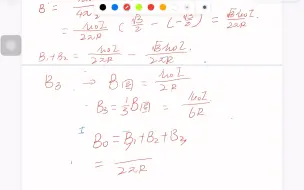 B = μ₀I / 4πr₂ (√3/2 - (-√3/2)) = √3μ₀I / 2πR
B₁+B₂ = μ₀I / 2πR - √3μ₀I / 2πR
B₃ → B圆 = μ₀I / 2R
= B₃ = 1/3 B圆 = μ₀I / 6R
B₀ = B₁ + B₂ + B₃
= / 2πR